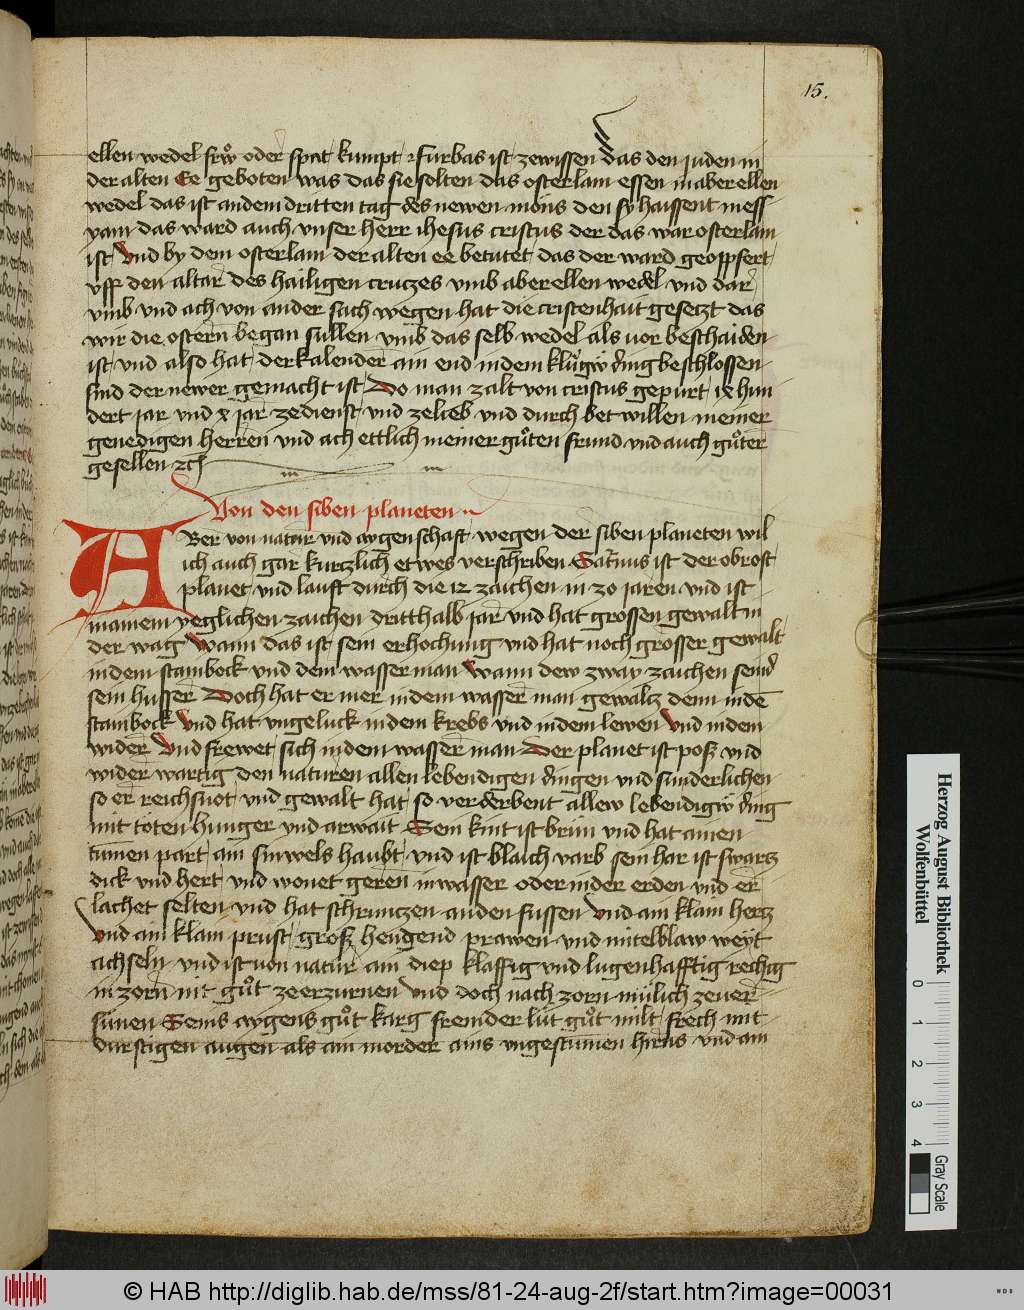 15.
ellen wedel frw̓ oder spat kumpt furbas ist zewissen das den juden in
der alten Ee geboten was das sie solten das osterlam essen in aberellen
wedel das ist an dem dritten tag des newen mons den sy haissent mess
yam das ward auch unser herr ihesus cristus der das war osterlam
ist Und by dem osterlam der alten ee betutet das der ward geopfert
uff den altar des hailigen cruczes umb aberellen wedel und dar
umb und ach von ander sach wegen hat die cristenhait gesetzt das
wir die ostern began sullen umb das selb wedel als vor beschaiden
ist und also hat der kalender ain end in dem ding beschlossen
sind der newer gemacht ist Do man zalt von cristus gepurt ix hun
dert jar und x jar ze dienst und ze lieb und durch bet willen meiner
genedigen herren und ach ettlich meiner guͦten frund und auch guͦter
gesellen ꝛcꝭ
Von den siben planeten
ABer von natur und aygenschaft wegen der siben planeten wil
ich auch gar kurczlich etwes verschriben Saturnus ist der obrost
planet und lauft durch die 12 zaichen in zo jaren und ist
in ainem yeglichen zaichen dritthalb jar und hat grossen gewalt in
der wag Wann das ist sein erhochung und hat noch grosser gewalt
in dem stainbock und dem wasserman Wann dew zway zaichen seind
sein husser Doch hat er mer in dem wasserman gewaltz denn in dē
stainbock Und hat ungeluck in dem krebs und in dem lewen Und in dem
wider Und frewet sich in dem wasserman Der planet ist poß und
widerwartig den naturen allen lebendigen dingen und sunderlichen
so er reichsnot und gewalt hat so verderbent allew lebendigw ding
mit toten hunger und arwait Sein kint ist brun und hat ainen
tunnen part ain sinwels haubt und ist blaich varb sein har ist swartz
dick und hert und wonet geren in wasser oder in der erden und er
lachet selten und hat schrunczen an den fussen Und ain klain hertz
Und ain klain prust groß hengend prawen und mitelblaw weyt
achseln und ist von natur ain diep klaffig und lugenhafftig rechig
in zorn nit guͦt ze erzurnen Und doch nach zorn mülich ze ver
sünen Seins aygens guͦt karg fremder lüt guͦt milt frech mit
durstigen augen als ain morder ains ungestumen hirns und ain
Herzog August Bibliothek
Wolfenbüttel
0 1 2 3 4
Gray Scale
© HAB http://diglib.hab.de/mss/81-24-aug-2f/start.htm?image=00031